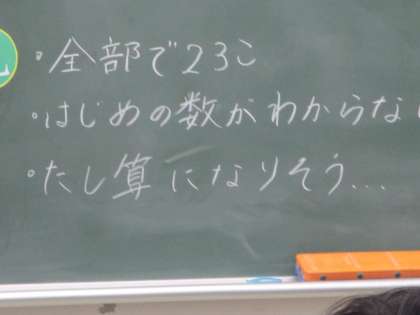 ・全部で23こ
・はじめの数がわからな
・たし算になりそう...